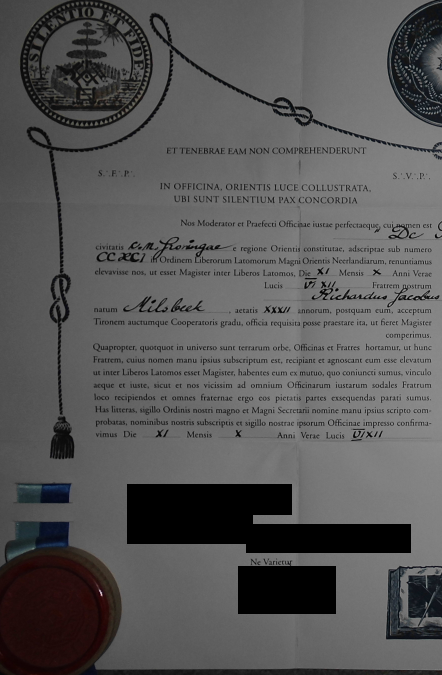 SILENTIO ET FIDE
ET TENEBRAE EAM NON COMPREHENDERUNT
S∴F∴P∴ S∴V∴P∴
IN OFFICINA, ORIENTIS LUCE COLLUSTRATA,
UBI SUNT SILENTIUM PAX CONCORDIA
Nos Moderator et Praefecti Officinae iustae perfectaeque, cui nomen est
" De
civitatis Groningae e regione Orientis constitutae, adscriptae sub numero
in Ordinem Liberorum Latomorum Magni Orientis Neerlandiarum, renuntiamus
elevavisse nos, ut esset Magister inter Liberos Latomos, Die XI Mensis X Anni Verae
Lucis VI XII Fratrem nostrum
Richardus Jacobus
natum Milsbeek, aetatis XXXII annorum, postquam eum, acceptum
Tironem auctumque Cooperatoris gradu, officia requisita posse praestare ita, ut fieret Magister
comperimus.
Quapropter, quotquot in universo sunt terrarum orbe, Officinas et Fratres hortamur, ut hunc
Fratrem, cuius nomen manu ipsius subscriptum est, recipiant et agnoscant eum esse elevatum
ut inter Liberos Latomos esset Magister, habentes eum ex mutuo, quo coniuncti sumus, vinculo
aeque et iuste, sicut et nos vicissim ad omnium Officinarum iustarum sodales Fratrum
loco recipiendos et omnes fraternae ergo eos pietatis partes exsequendas parati sumus.
Has litteras, sigillo Ordinis nostri magno et Magni Secretarii nomine manu ipsius scripto com-
probatas, nominibus nostris subscriptis et sigillo nostrae ipsorum Officinae impresso confirma-
vimus Die XI Mensis X Anni Verae Lucis VI XII
Ne Varietur